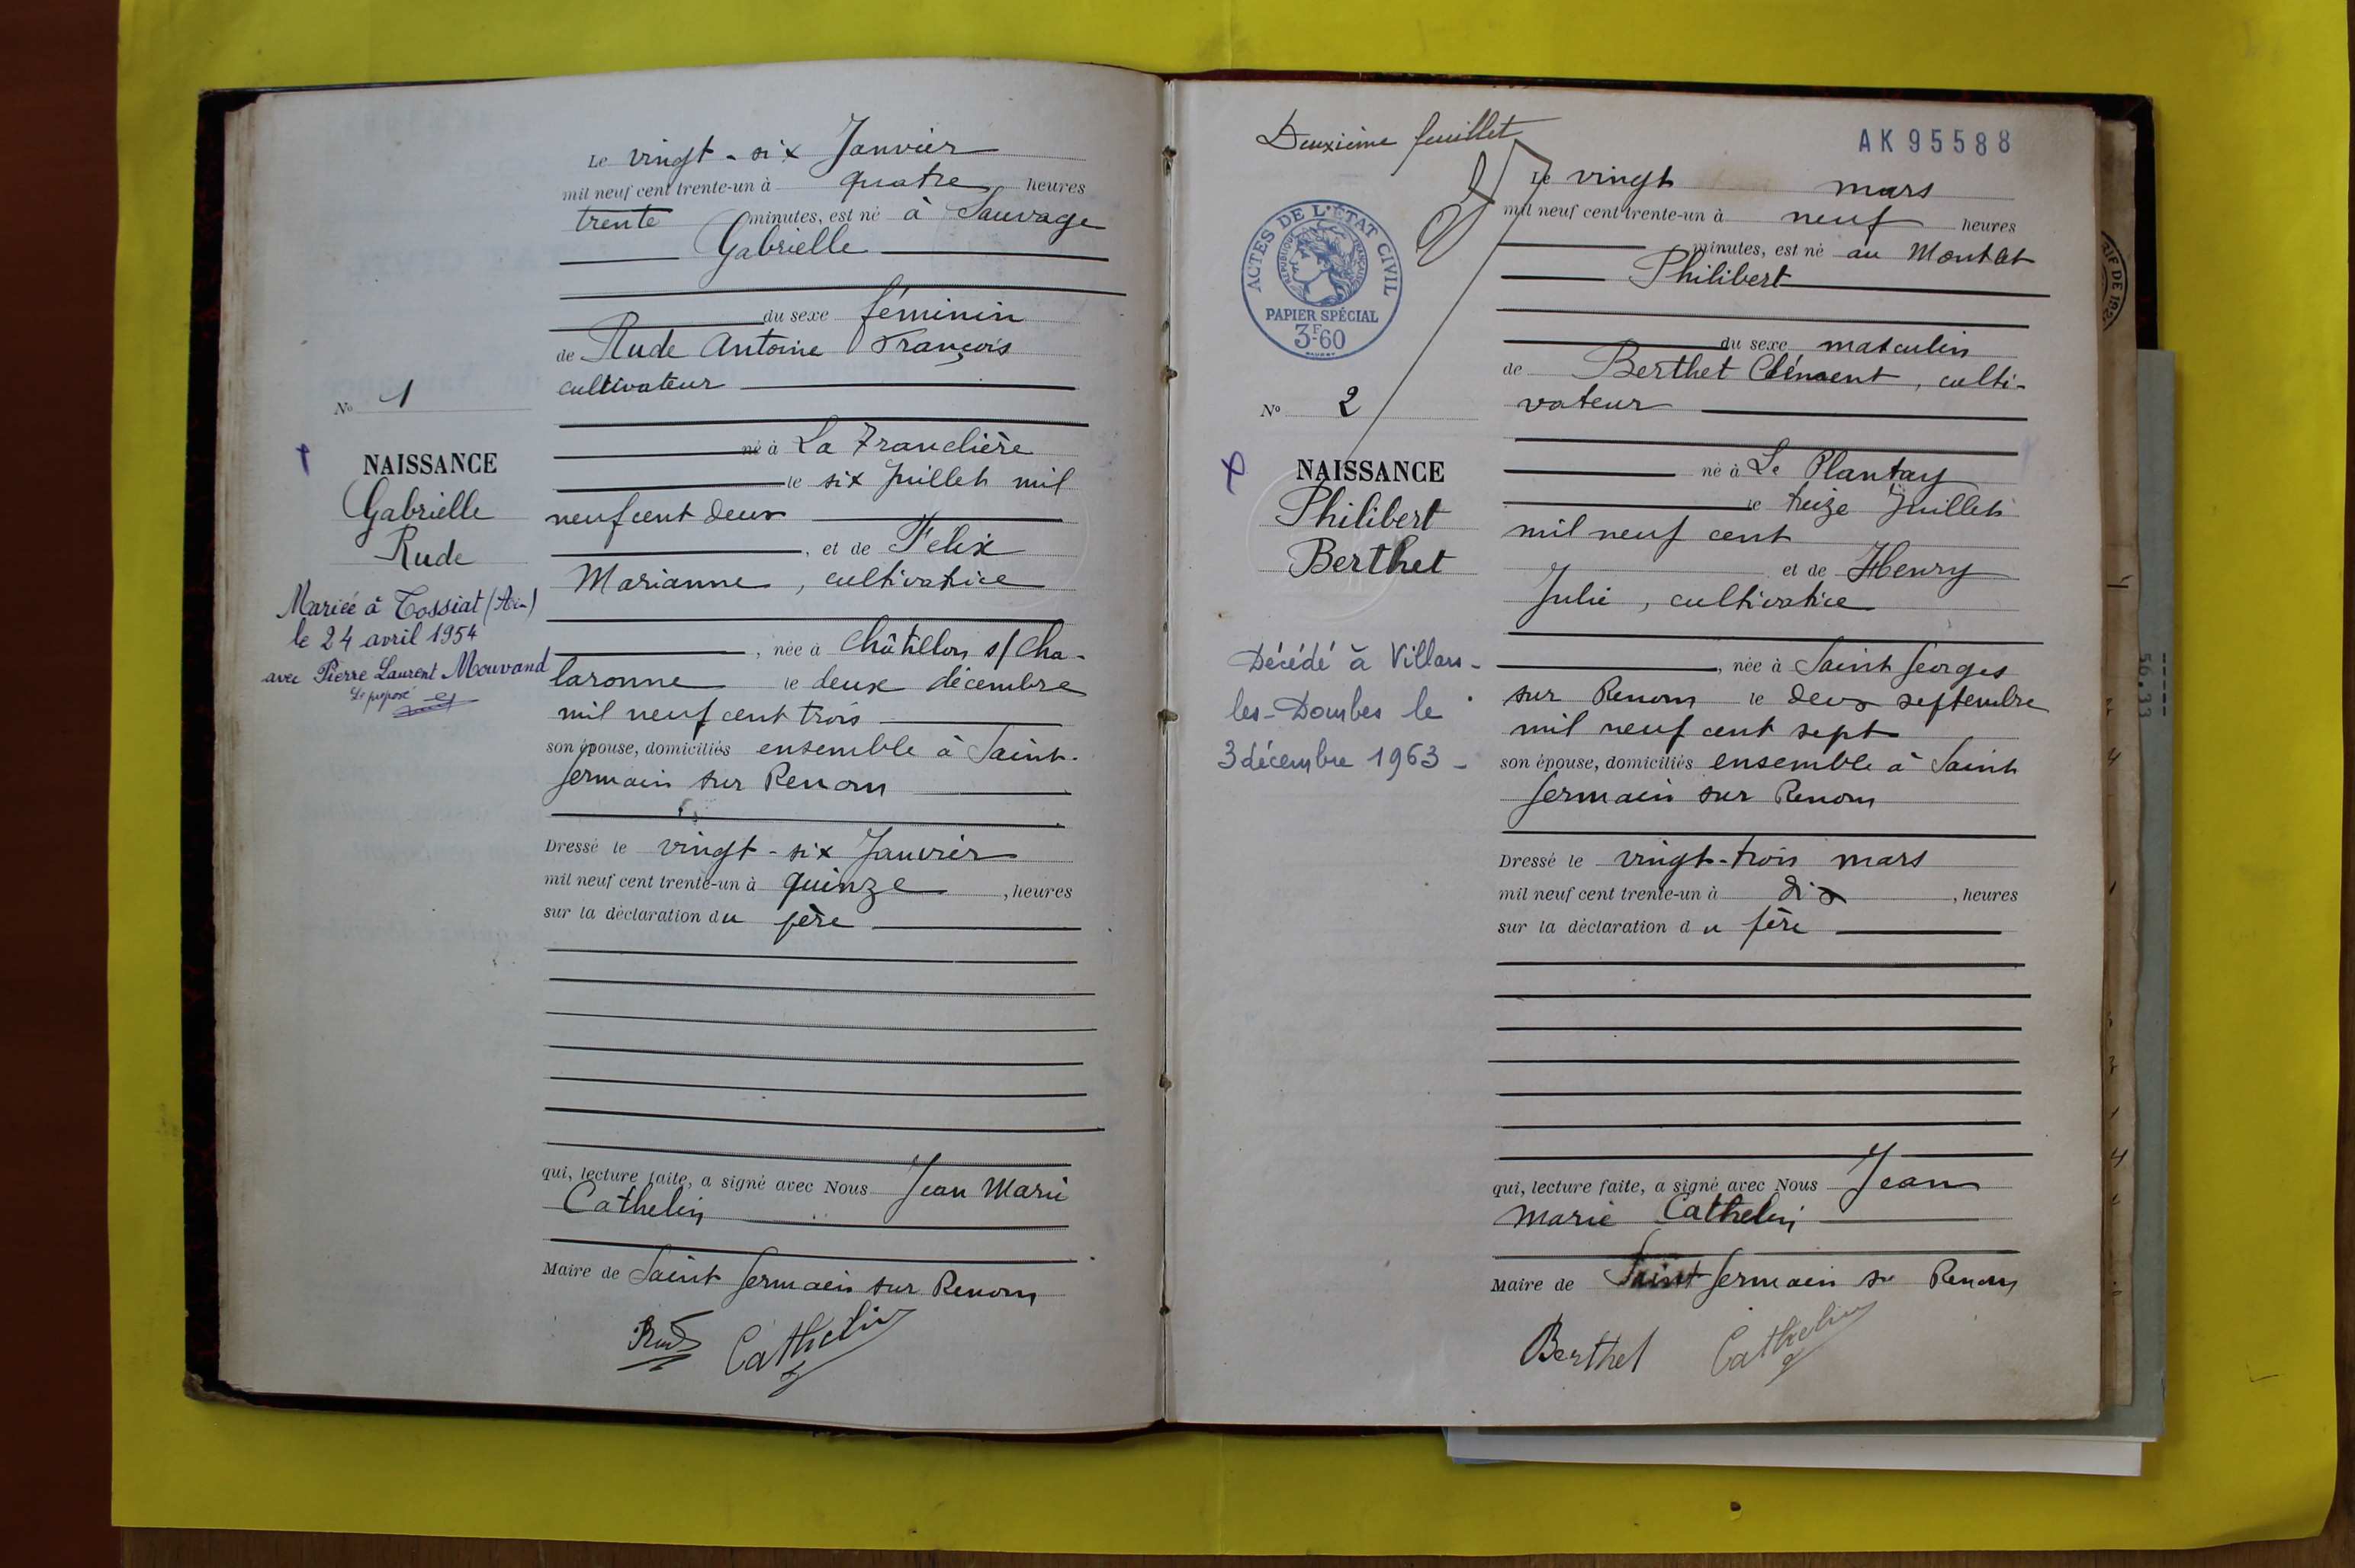 Le vingt-six Janvier
mil neuf cent trente-un à quatre heures
trente minutes, est né à Sauvage
Gabrielle
du sexe féminin
de Rude Antoine François
cultivateur
né à La Franclière
le six Juillet mil
neuf cent deux
, et de Félix
Marianne, cultivatrice
, née à Châtillon s/ Cha-
laronne le deux décembre
mil neuf cent trois
son épouse, domiciliés ensemble à Saint-
Germain sur Renom
Dressé le vingt-six Janvier
mil neuf cent trente-un à quinze, heures
sur la déclaration du père
qui, lecture faite, a signé avec Nous Jean Marie
Cathelin
Maire de Saint Germain sur Renom
Rude Cathelin
No 1
NAISSANCE
Gabrielle
Rude
Mariée à Tossiat (Ain)
le 24 avril 1954
avec Pierre Laurent Mouvand
Le préposé
Deuxième feuillet
AK95588
ACTES DE L'ÉTAT CIVIL
RÉPUBLIQUE FRANÇAISE
PAPIER SPÉCIAL
3F60
No 2
NAISSANCE
Philibert
Berthet
Décédé à Villars-
les-Dombes le
3 décembre 1963 -
Le vingt mars
mil neuf cent trente-un à neuf heures
minutes, est né au Montat
Philibert
du sexe masculin
de Berthet Clément, culti-
vateur
né à Le Plantay
le treize Juillet
mil neuf cent
et de Henry
Julie, cultivatrice
, née à Saint Georges
sur Renom le deux septembre
mil neuf cent sept
son épouse, domiciliés ensemble à Saint
Germain sur Renom
Dressé le vingt-trois mars
mil neuf cent trente-un à dix, heures
sur la déclaration du père
qui, lecture faite, a signé avec Nous Jean
Marie Cathelin
Maire de Saint Germain sur Renom
Berthet Cathelin